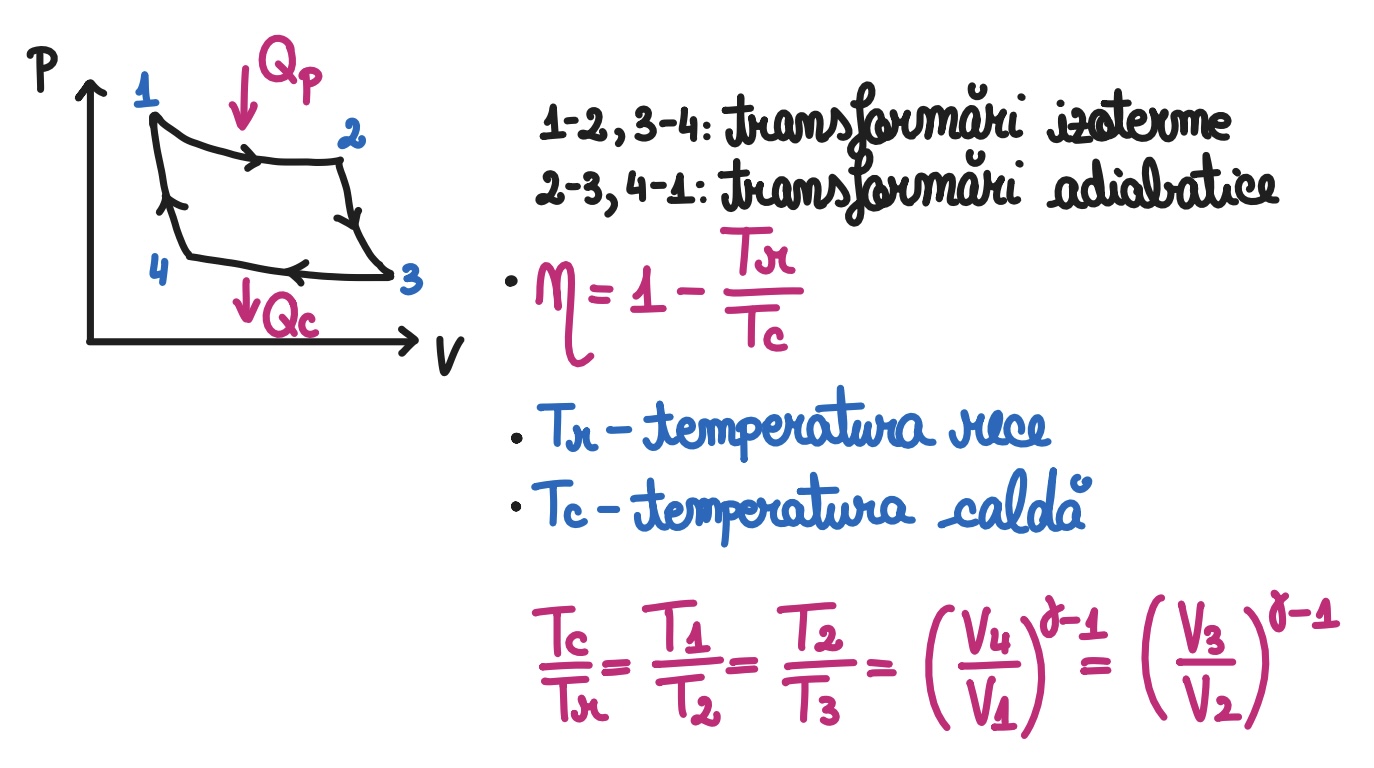 P
Qp
1
2
4
3
Qc
V
1-2, 3-4: transformări izoterme
2-3, 4-1: transformări adiabatice
• η = 1 - Tr/Tc
• Tr - temperatura rece
• Tc - temperatura caldă
Tc/Tr = T1/T2 = T2/T3 = (V4/V1)^γ-1 = (V3/V2)^γ-1